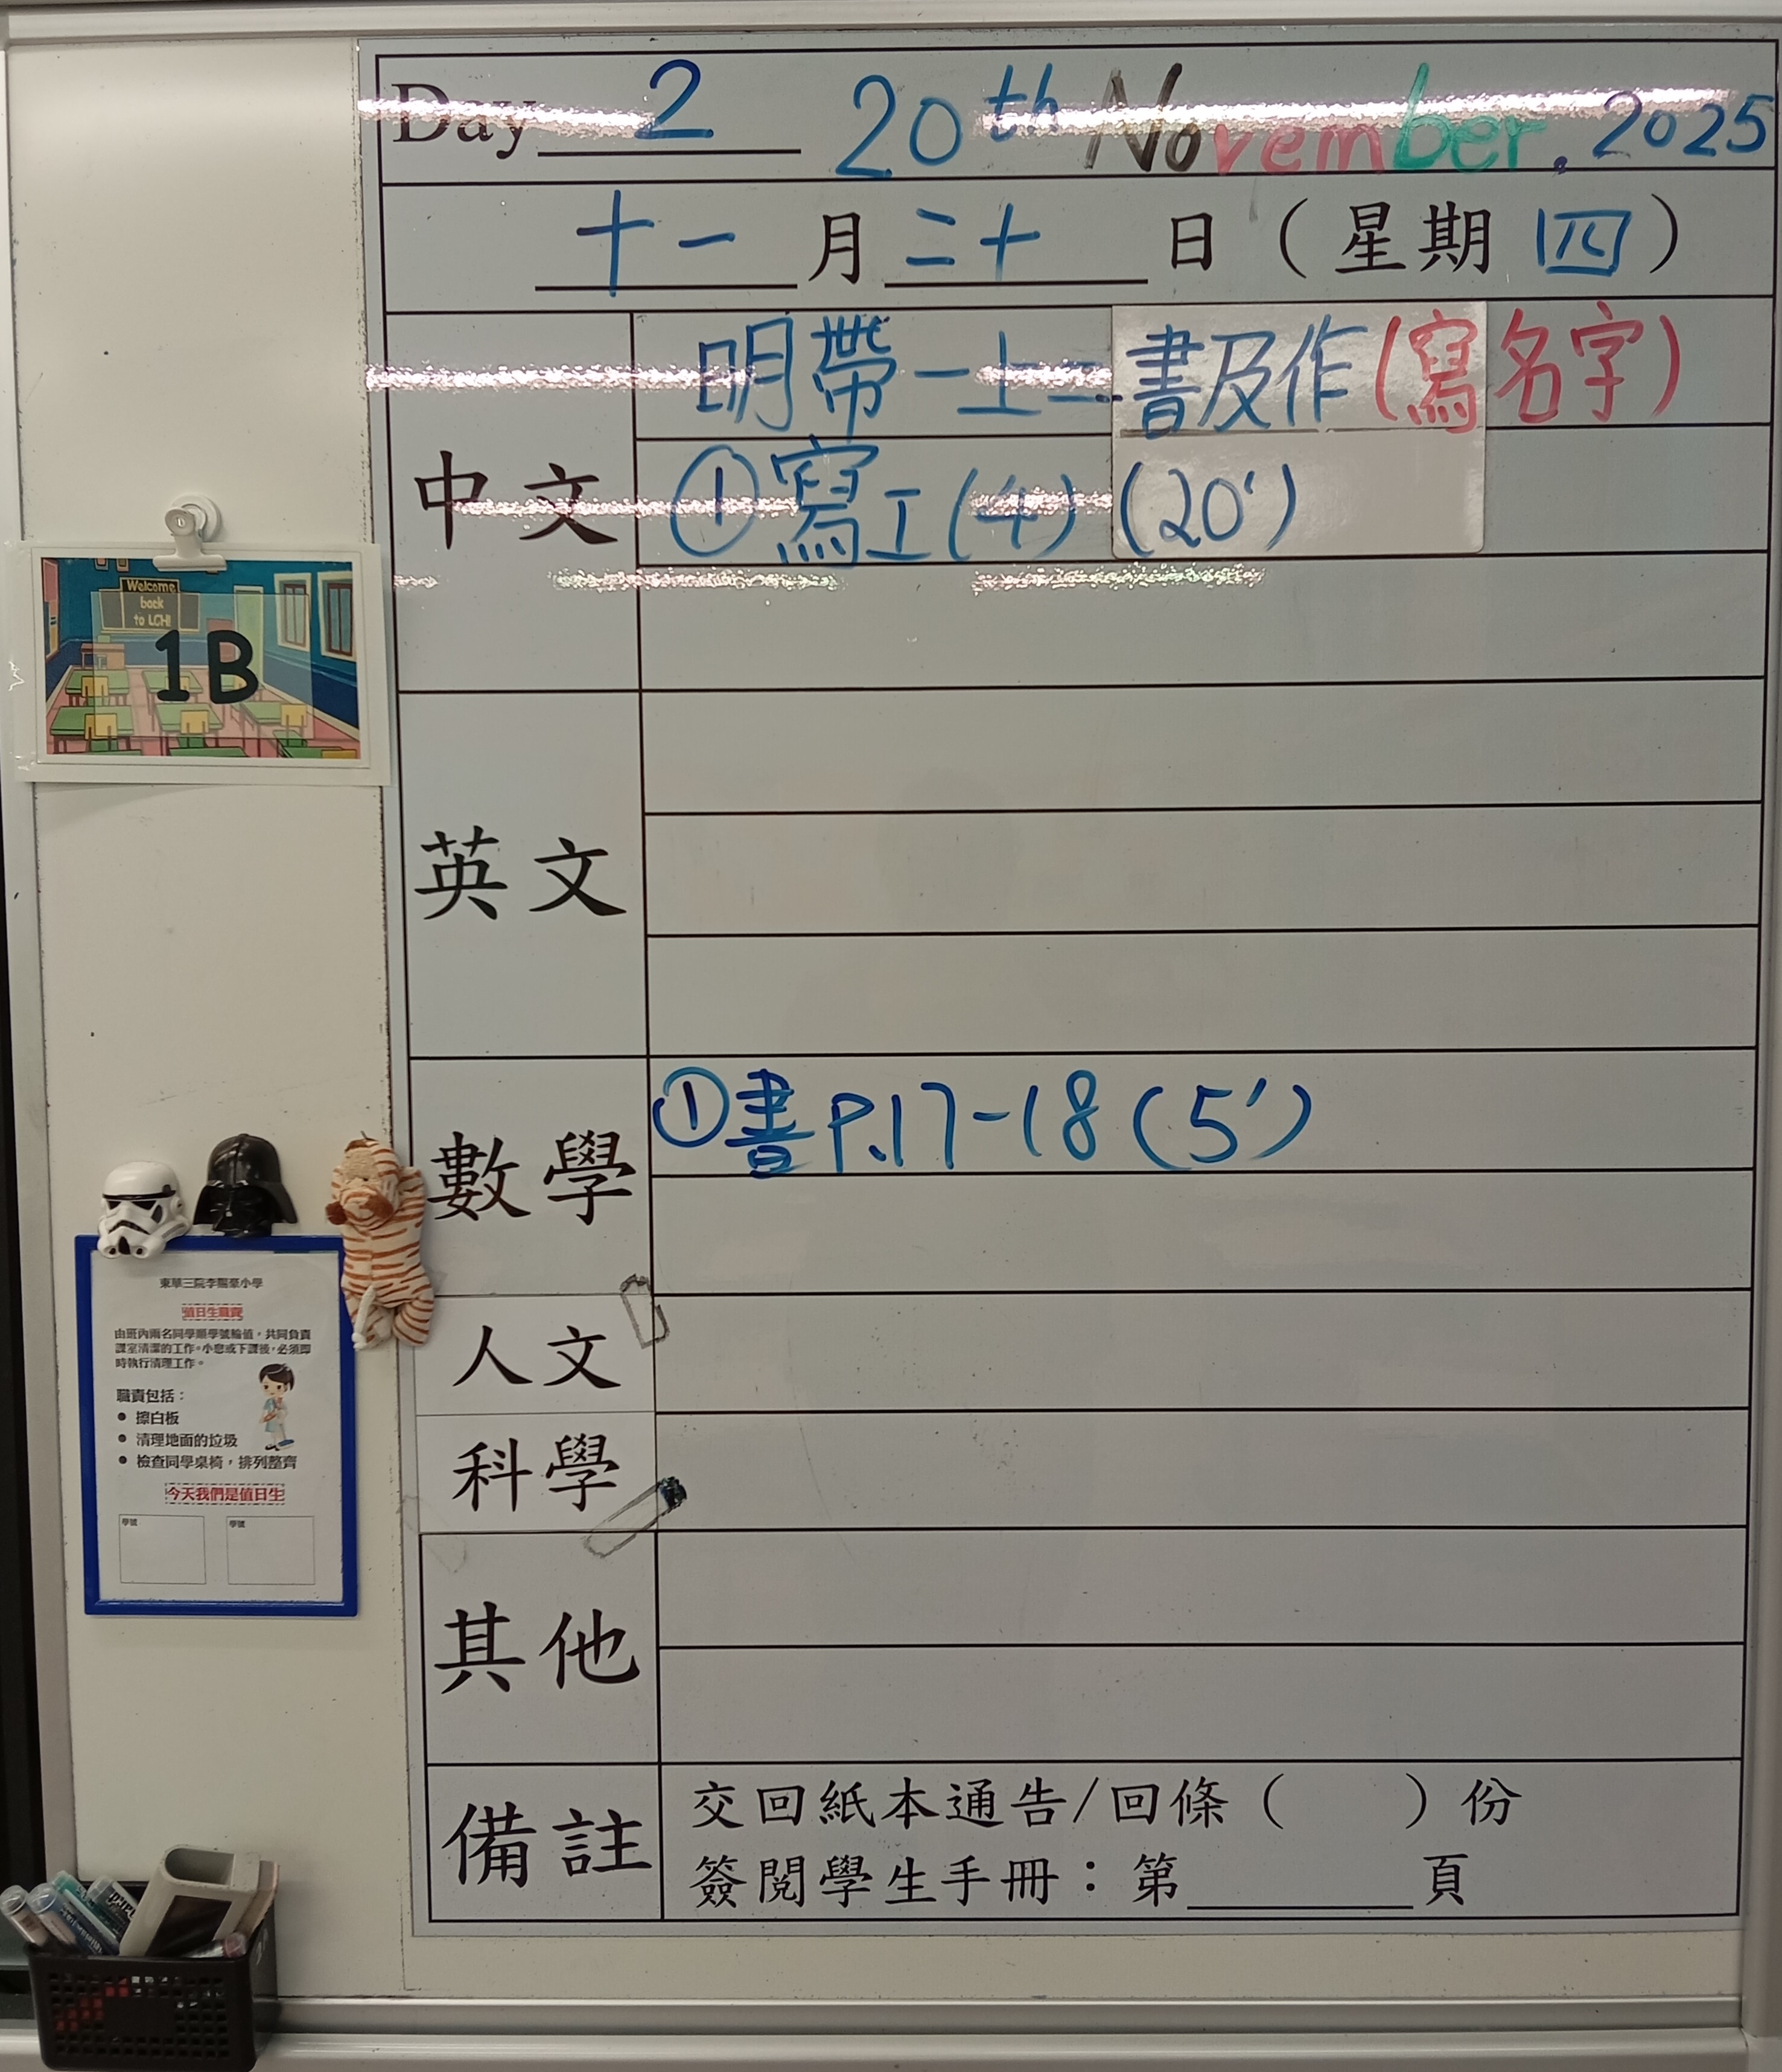 Day 2 20th November. 2025
十一 月 二十 日 ( 星期 四 )
中文
明帶一上二書及作(寫名字)
①寫工(4) (20')
Welcome
back
to LCH!
1B
英文
數學
①書P.17-18 (5')
東華三院李賜豪小學
值日生職責
由班內兩名同學順學號輪值，共同負責
課室清潔的工作。小息或下課後，必須即
時執行清理工作。
職責包括：
● 擦白板
● 清理地面的垃圾
● 檢查同學桌椅，排列整齊
今天我們是值日生
學號 學號
人文
科學
其他
備註
交回紙本通告/回條（ ）份
簽閱學生手冊：第______頁